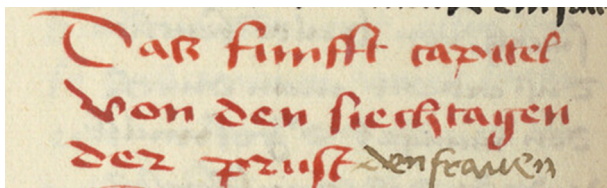 Das funfft capitel
von den siechtagen
der prust den frawen